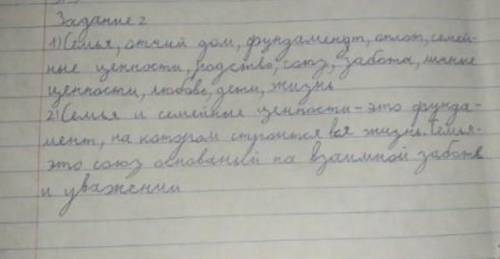 Задание 2
1) Семья, отчий дом, фундамендт, оплот, семей-
ные ценности, родство, союз, забота, личные
ценности, любовь, дети, жизнь
2) Семья и семейные ценности - это фунда-
мент, на котором строится вся жизнь. Семья-
это союз основаный на взаимной заботе
и уважении